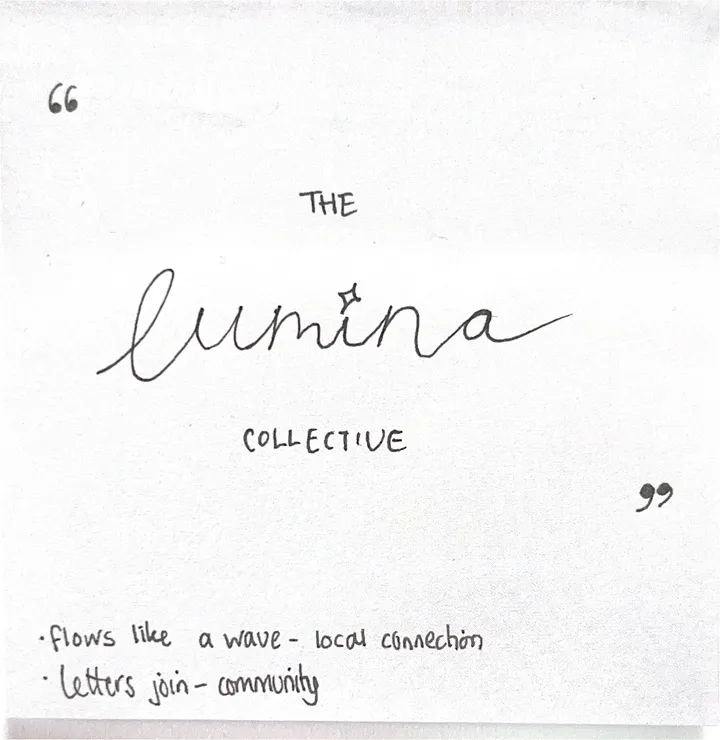 “
THE
lumina
COLLECTIVE
”
· flows like a wave - local connection
· Letters join - community